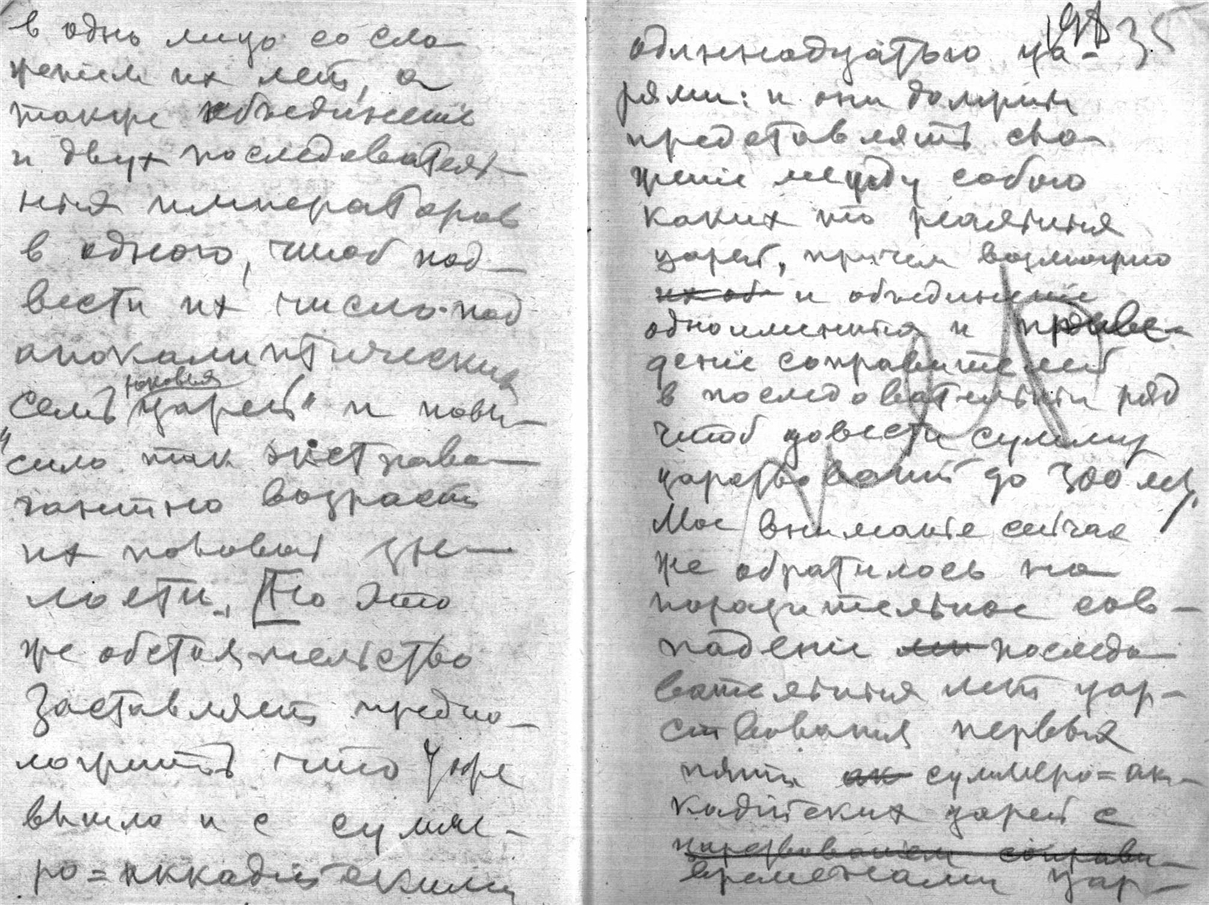 в одно лицо со сло-
жением их лет, а
также объединение
и двух последователь-
ных императоров
в одного, чтоб под-
вести их число под
апокалиптических
семь роковых
„царей" и повы-
сило так экстрава-
гантно возраст
их половой зре-
лости. [Но это
же обстоятельство
заставляет предпо-
ложить что тоже
вышло и с сумме-
ро=аккадийскими
35
одиннадцатью ца-
рями: и они должны
представлять сло-
жение между собою
каких то реальных
царей, причем возможно
их об и объединение
одноименных и приве-
дение соправителей
в последовательный ряд
чтоб довести сумму
царствований до 300 лет.
Мое внимание сейчас
же обратилось на
поразительное сов-
падение ми последо-
вательных лет цар-
ствования первых
пяти ак суммеро=ак-
кадийских царей с
царствованием соправи-
временами цар-